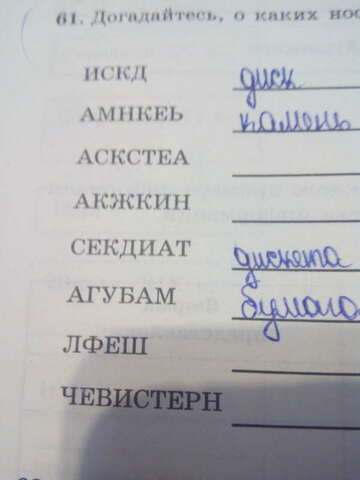 61. Догадайтесь, о каких нос
ИСКД диск
АМНКЕЬ камень
АСКСТЕА
АКЖКИН
СЕКДИАТ дискета
АГУБАМ бумага
ЛФЕШ
ЧЕВИСТЕРН